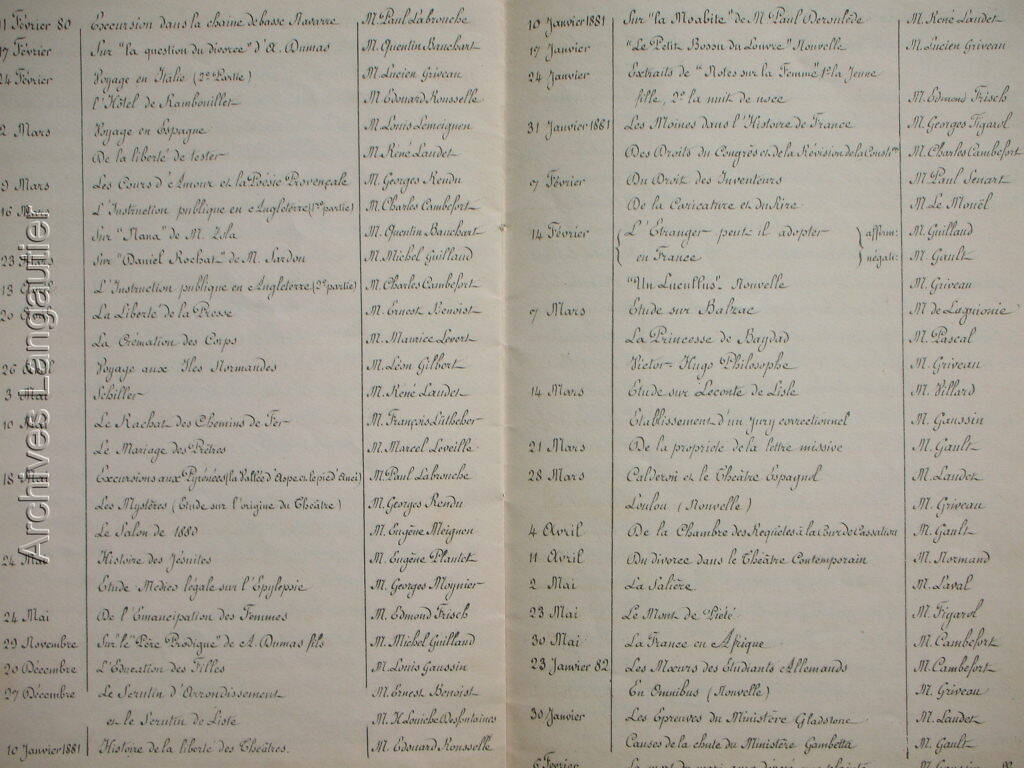 11 Février 80 Excursion dans la chaine de basse Navarre M. Paul Labrouche
17 Février Sur "la question du divorce" d'A. Dumas M. Quentin Bauchart
24 Février Voyage en Italie (2e Partie) M. Lucien Griveau
l'Hôtel de Rambouillet M. Edouard Rousselle
2 Mars Voyage en Espagne M. Louis Lemeignen
De la liberté de tester M. René Laudet
9 Mars Les Cours d'Amour et la Poésie Provençale M. Georges Rendu
16 Mars L'Instruction publique en Angleterre (1re partie) M. Charles Cambefort
Sur "Nana" de M. Zola M. Quentin Bauchart
23 Mars Sur "Daniel Rochat" de M. Sardou M. Michel Guilland
13 L'Instruction publique en Angleterre (2e partie) M. Charles Cambefort
20 La Liberté de la Presse M. Ernest Benoist
La Crémation des Corps M. Maurice Levert
26 Voyage aux Iles Normandes M. Léon Gilbert
3 Mai Schiller M. René Laudet
10 Le Rachat des Chemins de Fer M. François Lütheber
Le Mariage des Prêtres M. Marcel Loveille
18 Mai Excursions aux Pyrénées (la Vallée d'Aspe et le pied d'Anei) M. Paul Labrouche
Les Mystères (Etude sur l'origine du Théatre) M. Georges Rendu
Le Salon de 1880 M. Eugène Meignen
24 Mai Histoire des Jésuites M. Eugène Plantet
Etude Medico légale sur l'Epylepsie M. Georges Moynier
24 Mai De l'Emancipation des Femmes M. Edmond Frisch
29 Novembre Sur le "Père Prodigue" de A. Dumas fils M. Michel Guilland
20 Décembre L'Education des Filles M. Louis Gaussin
27 Décembre Le Scrutin d'Arrondissement M. Ernest Benoist
et le Scrutin de Liste M. H. Loniche Desfontaines
10 Janvier 1881 Histoire de la liberté des Théâtres. M. Edouard Rousselle
10 Janvier 1881 Sur "la Moabite" de M. Paul Deroulède M. René Laudet
17 Janvier "Le Petit Bossu du Louvre" Nouvelle M. Lucien Griveau
24 Janvier Extraits de "Notes sur la Femme" 1º la Jeune
fille, 2º la nuit de noce M. Edmond Frisch
31 Janvier 1881 Les Moines dans l'Histoire de France M. Georges Figarol
Des Droits du Congrès et de la Révision de la Constion M. Charles Cambefort
7 Février Du Droit des Inventeurs M. Paul Senart
De la Caricature et du Rire M. Le Mouël
14 Février L'Etranger peut-il adopter affirm: M. Guilland
en France négati: M. Gault
"Un Lucullus" Nouvelle M. Griveau
7 Mars Etude sur Balzac M de Laguionie
La Princesse de Bagdad M. Pascal
Victor-Hugo Philosophe M. Griveau
14 Mars Etude sur Leconte de Lisle M. Villard
Etablissement d'un jury correctionnel M. Gaussin
21 Mars De la propriété de la lettre missive M. Gault
28 Mars Calderon et le Théâtre Espagnol M. Laudet
Loulou (Nouvelle) M. Griveau
4 Avril De la Chambre des Requêtes à la Cour de Cassation M. Gault
11 Avril Du divorce dans le Théâtre Contemporain M. Normand
2 Mai La Salière M. Laval
23 Mai Le Mont de Piété M. Figarol
30 Mai La France en Afrique M. Cambefort
23 Janvier 82 Les Mœurs des Etudiants Allemands M. Cambefort
En Omnibus (Nouvelle) M. Griveau
30 Janvier Les Epreuves du Ministère Gladstone M. Laudet
Causes de la chute du Ministère Gambetta M. Gault
6 Février
Archives Langautier